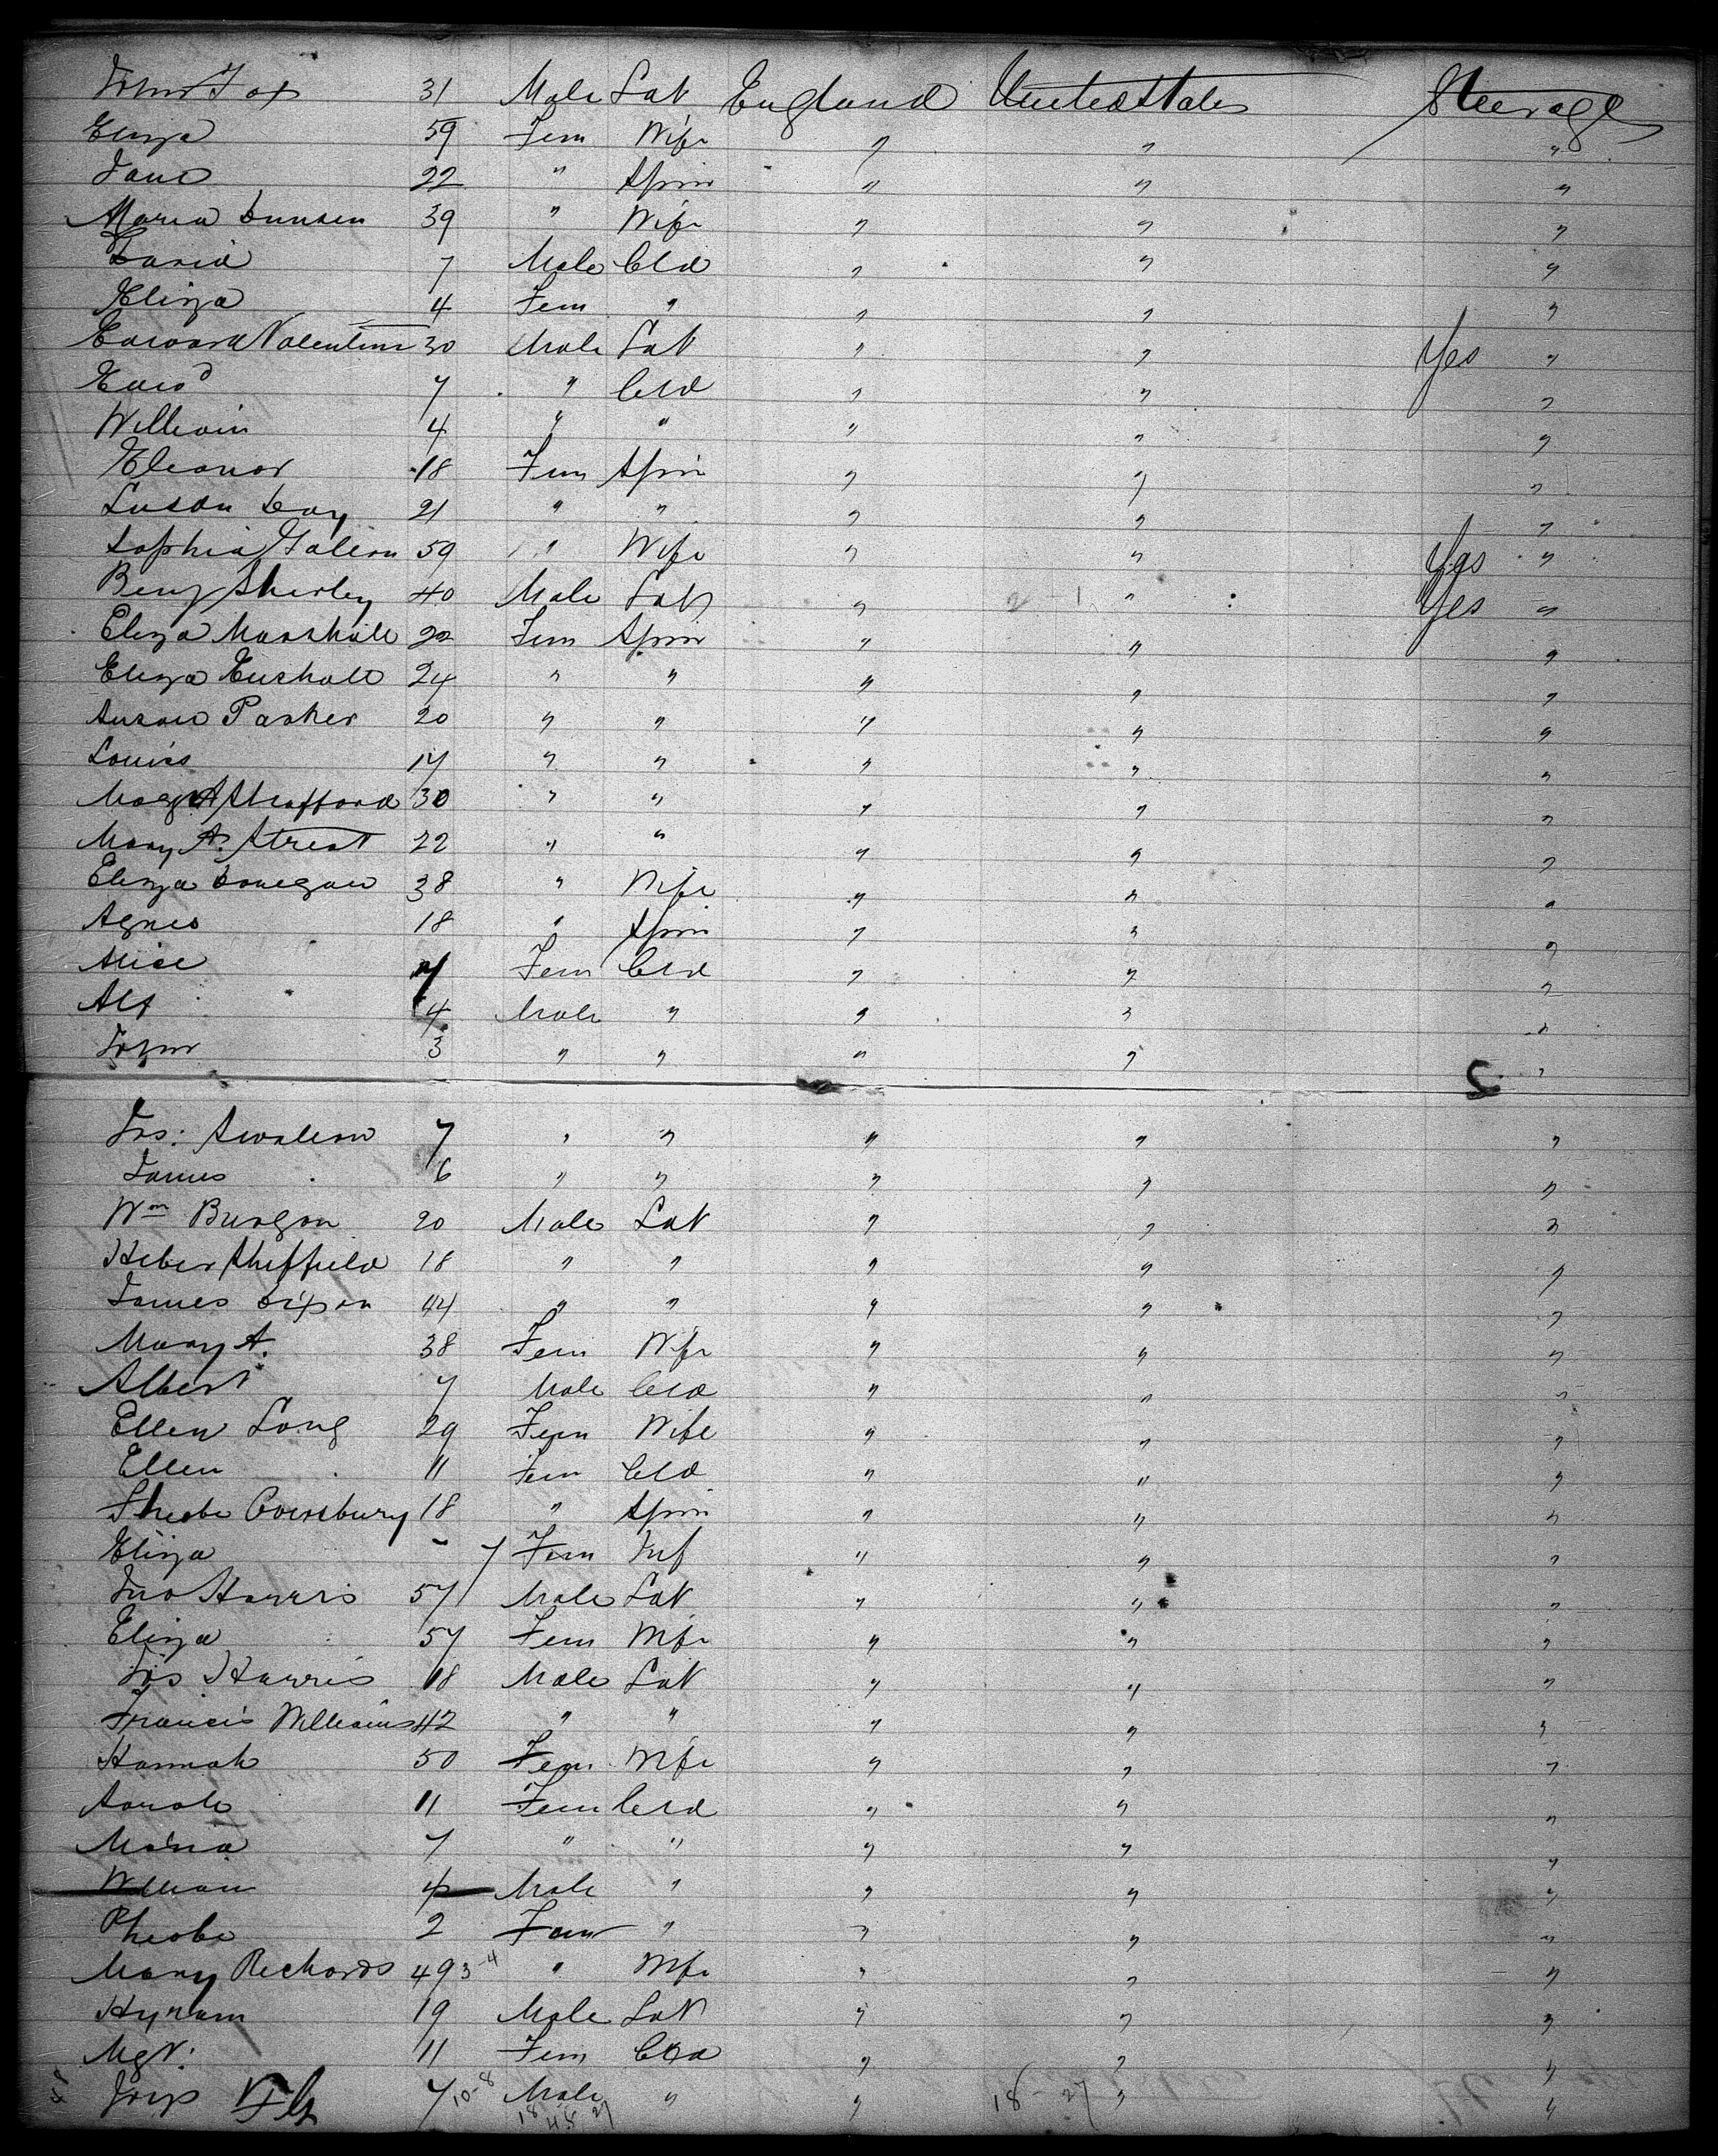 John Fox 31 Male Lab England United States Steerage
Eliza 59 Fem Wife " " "
Jane 22 " Spin " " "
Maria Duncan 39 " Wife " " "
David 7 Male Cld " " "
Eliza 4 Fem " " " "
Edward Valentine 30 Male Lab " " Yes "
Edwd 7 " Cld " " "
William 4 " " " " "
Eleanor 18 Fem Spin " " "
Susan Day 21 " " " " "
Sophia 59 " Wife " " Yes "
Benj Shirley 40 Male Lab " " Yes "
Eliza Marshall 22 Fem Spin " " "
Eliza 24 " " " " "
Susan Parker 20 " " " " "
Louisa 14 " " " " "
30 " " " " "
Mary A. Street 22 " " " " "
Eliza Donegan 38 " Wife " " "
Agnes 18 " Spin " " "
Alice 7 Fem Cld " " "
Alf 4 Male " " " "
John 3 " " " " "
Jos: 7 " " " " "
James 6 " " " " "
Wm Burgon 20 Male Lab " " "
Heber Sheffield 18 " " " " "
James Dixon 44 " " " " "
Mary A. 38 Fem Wife " " "
Albert 7 Male Cld " " "
Ellen Long 29 Fem Wife " " "
Ellen 11 Fem Cld " " "
18 " Spin " " "
Eliza - 7 Fem Inf " " "
Jno Harris 57 Male Lab " " "
Eliza 57 Fem Wife " " "
Jos Harris 18 Male Lab " " "
Francis Williams 42 " " " " "
Hannah 50 Fem Wife " " "
Sarah 11 Fem Cld " " "
Maria 7 " " " " "
William 4 Male " " " "
Pheobe 2 Fem " " " "
Mary Richards 49 3-4 " Wife " " "
Hyram 19 Male Lab " " "
Mgt: 11 Fem Cld " " "
7 10-8 Male " " 18-27 " "
18 48 27